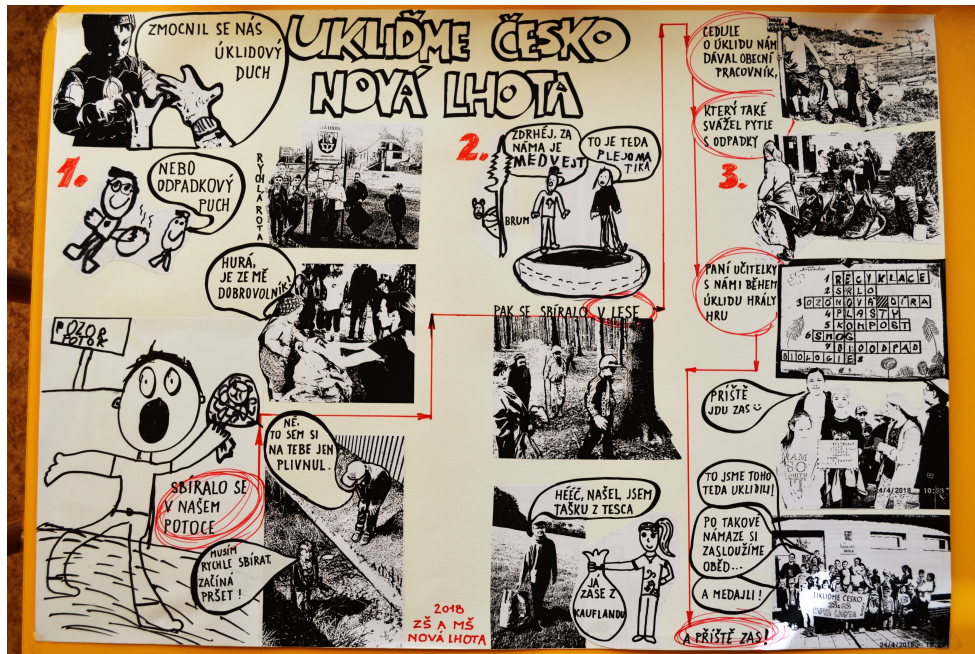 UKLIĎME ČESKO
NOVÁ LHOTA
ZMOCNIL SE NÁS
ÚKLIDOVÝ
DUCH
1.
NEBO
ODPADKOVÝ
PUCH
RYCHLÁ ROTA
HURÁ,
JE ZE MĚ
DOBROVOLNÍK!
POZOR
POTOK
SBÍRALO SE
V NAŠEM
POTOCE
NÉ,
TO SEM SI
NA TEBE JEN
PLIVNUL.
MUSÍM
RYCHLE SBÍRAT,
ZAČÍNÁ
PRŠET!
2.
ZDRHÉJ, ZA
NÁMA JE
MEDVEJT
TO JE TEDA
PLEJOMA
TIKA
BRUM
PAK SE SBÍRALO V LESE
HÉÉČ, NAŠEL JSEM
TAŠKU Z TESCA
JÁ
ZASE Z
KAUFLANDU
2018
ZŠ A MŠ
NOVÁ LHOTA
CEDULE
O ÚKLIDU NÁM
DÁVAL OBECNÍ
PRACOVNÍK,
KTERÝ TAKÉ
SVÁŽEL PYTLE
S ODPADKY
3.
PANÍ UČITELKY
S NÁMI BĚHEM
ÚKLIDU HRÁLY
HRU
1 RECYKLACE
2 SKLO
3 OZONOVÁ DÍRA
4 PLASTY
5 KOMPOST
6 SMOG
7 BIOODPAD
BIOLOGIE 8
PŘÍŠTĚ
JDU ZAS
24/4/2018
TO JSME TOHO
TEDA UKLIDILI!
PO TAKOVÉ
NÁMAZE SI
ZASLOUŽÍME
OBĚD...
A MEDAJLI!
UKLIĎME ČESKO
NOVÁ LHOTA
24/4/2018
A PŘÍŠTĚ ZAS!